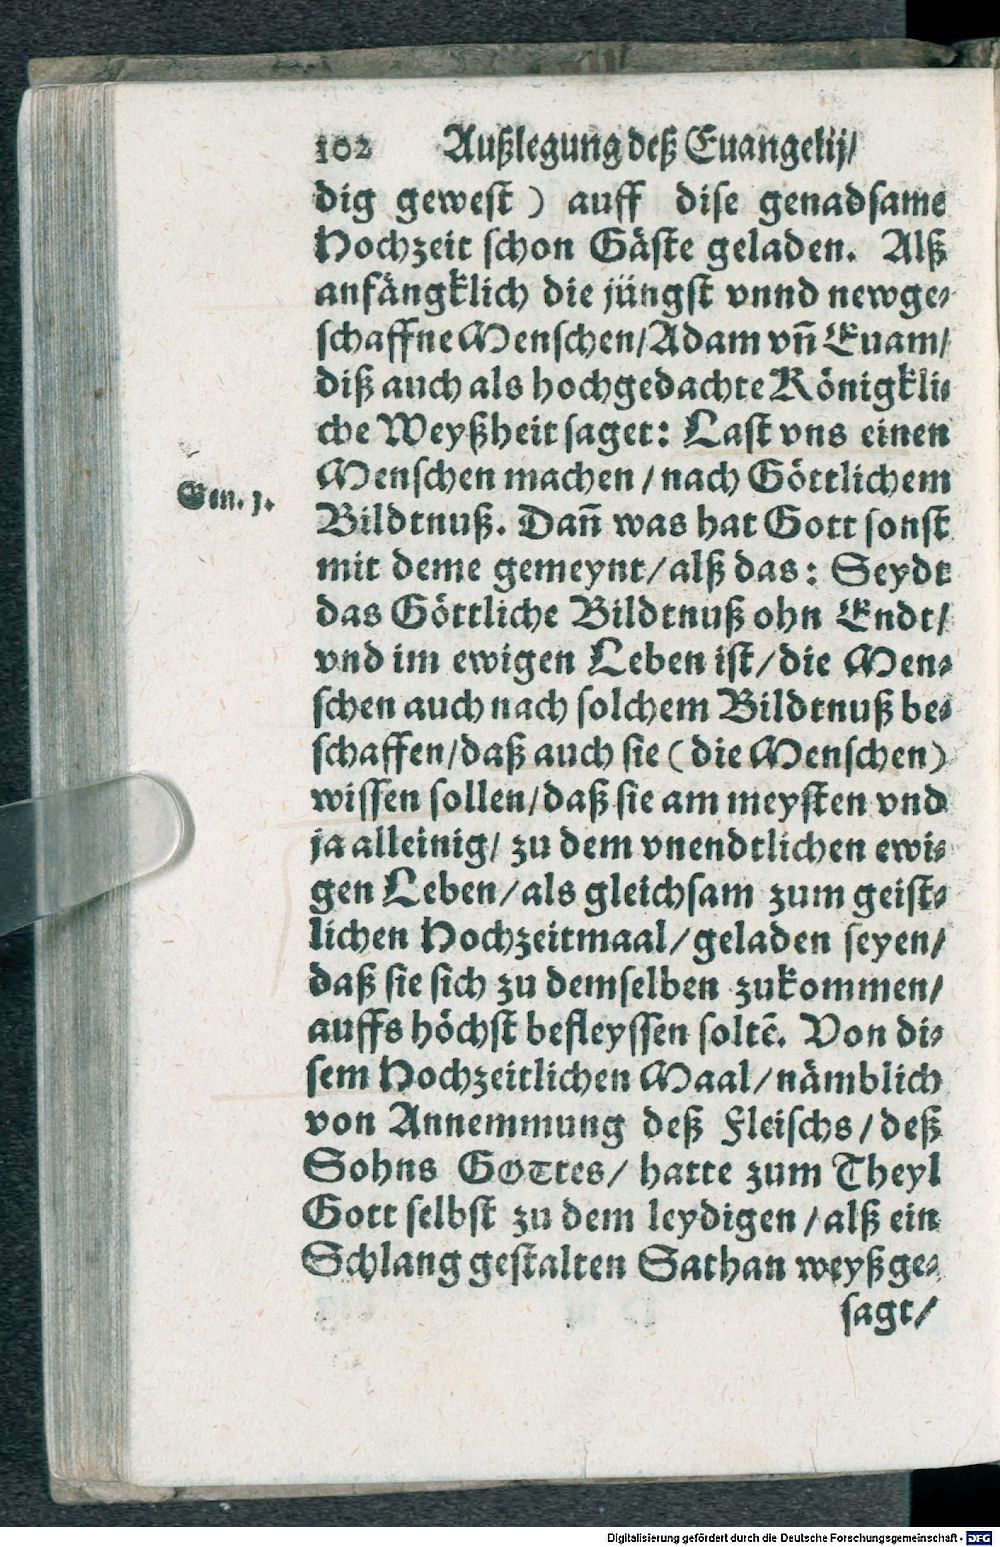 102 Außlegung deß Euangelij/
dig gewest) auff dise genadsame
Hochzeit schon Gäste geladen. Alß
anfängklich die jüngst vnnd newge-
schaffne Menschen/Adam vñ Euam/
diß auch als hochgedachte Königkli-
che Weyßheit saget: Last vns einen
Menschen machen/nach Göttlichem
Gen. 1.
Bildtnuß. Dañ was hat Gott sonst
mit deme gemeynt/alß das: Seydt
das Göttliche Bildtnuß ohn Endt/
vnd im ewigen Leben ist/die Men-
schen auch nach solchem Bildtnuß be-
schaffen/daß auch sie (die Menschen)
wissen sollen/daß sie am meysten vnd
ja alleinig/ zu dem vnendtlichen ewi-
gen Leben/als gleichsam zum geist-
lichen Hochzeitmaal/geladen seyen/
daß sie sich zu demselben zukommen/
auffs höchst befleyssen soltē. Von di-
sem Hochzeitlichen Maal/nämblich
von Annemmung deß Fleischs/deß
Sohns GOTtes/ hatte zum Theyl
Gott selbst zu dem leydigen/alß ein
Schlang gestalten Sathan weyßge-
sagt/
Digitalisierung gefördert durch die Deutsche Forschungsgemeinschaft - DFG